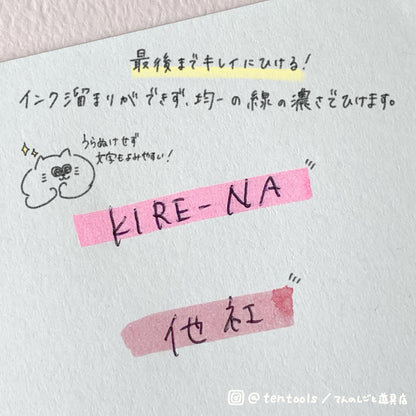 最後までキレイにひける!
インク溜まりができず、均一の線の濃さでひけます。
うらぬけせず
文字もよみやすい!
KIRE-NA
他社
@tentools/てんのしごと道具店